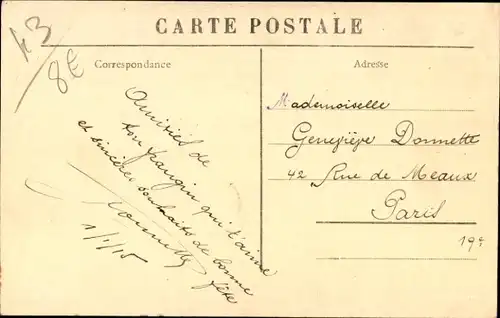 CARTE POSTALE
43
8€
Correspondance
Adresse
Amitiés de
ton qui t'aime
et sincères souhaits de bonne
fête
1/1/15
Mademoiselle
Geneviève Donnette
42 Rue de Meaux
Paris
19e